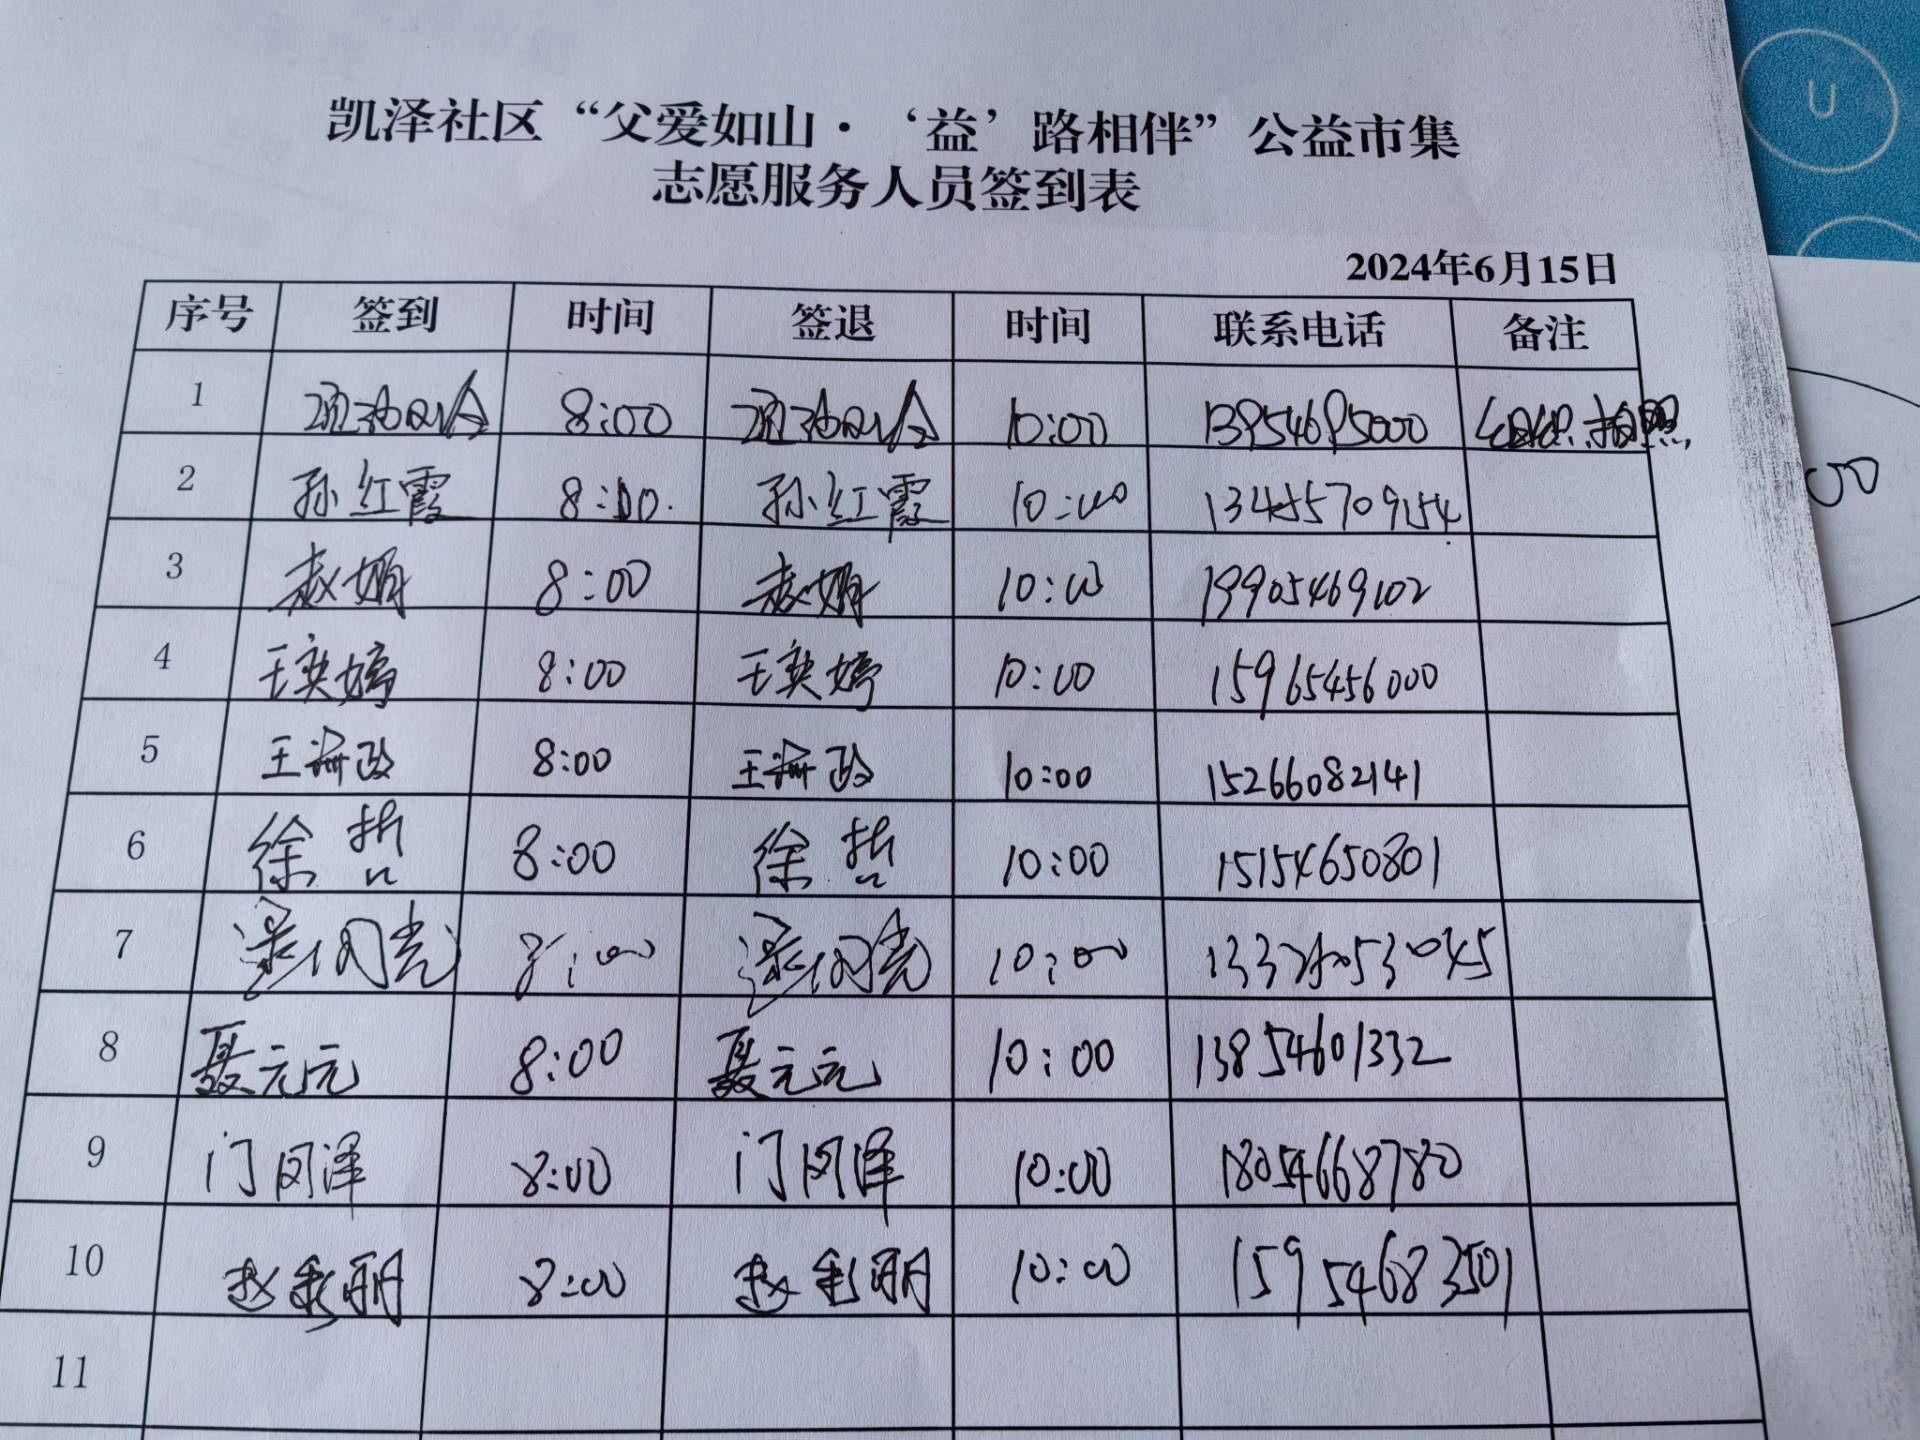 凯泽社区“父爱如山·‘益’路相伴”公益市集
志愿服务人员签到表
2024年6月15日
序号 签到 时间 签退 时间 联系电话 备注
1 8:00 10:00 13954695000 组织.拍照
2 孙红霞 8:00. 孙红霞 10:00 13455709154
3 赵娟 8:00 赵娟 10:00 19905469102
4 王奕婷 8:00 王奕婷 10:00 15965456000
5 王海政 8:00 王海政 10:00 15266082141
6 徐哲 8:00 徐哲 10:00 15154650801
7 8:00 10:00
8 聂元元 8:00 聂元元 10:00 13854601332
9 门凤泽 8:00 门凤泽 10:00 18054668780
10 赵彩丽 8:00 赵彩丽 10:00 15954683501
11
U
00